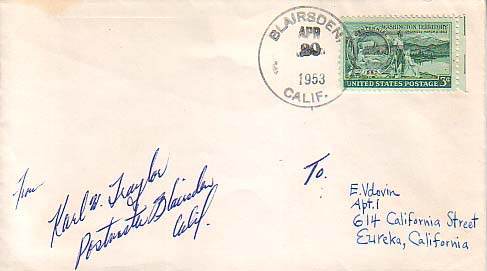 BLAIRSDEN,
APR
1953
CALIF.
WASHINGTON TERRITORY
UNITED STATES POSTAGE 3¢
From
Karl W. Traylor
Postmaster Blairsden
Calif.
To.
E. Vdovin
Apt. 1
614 California Street
Eureka, California